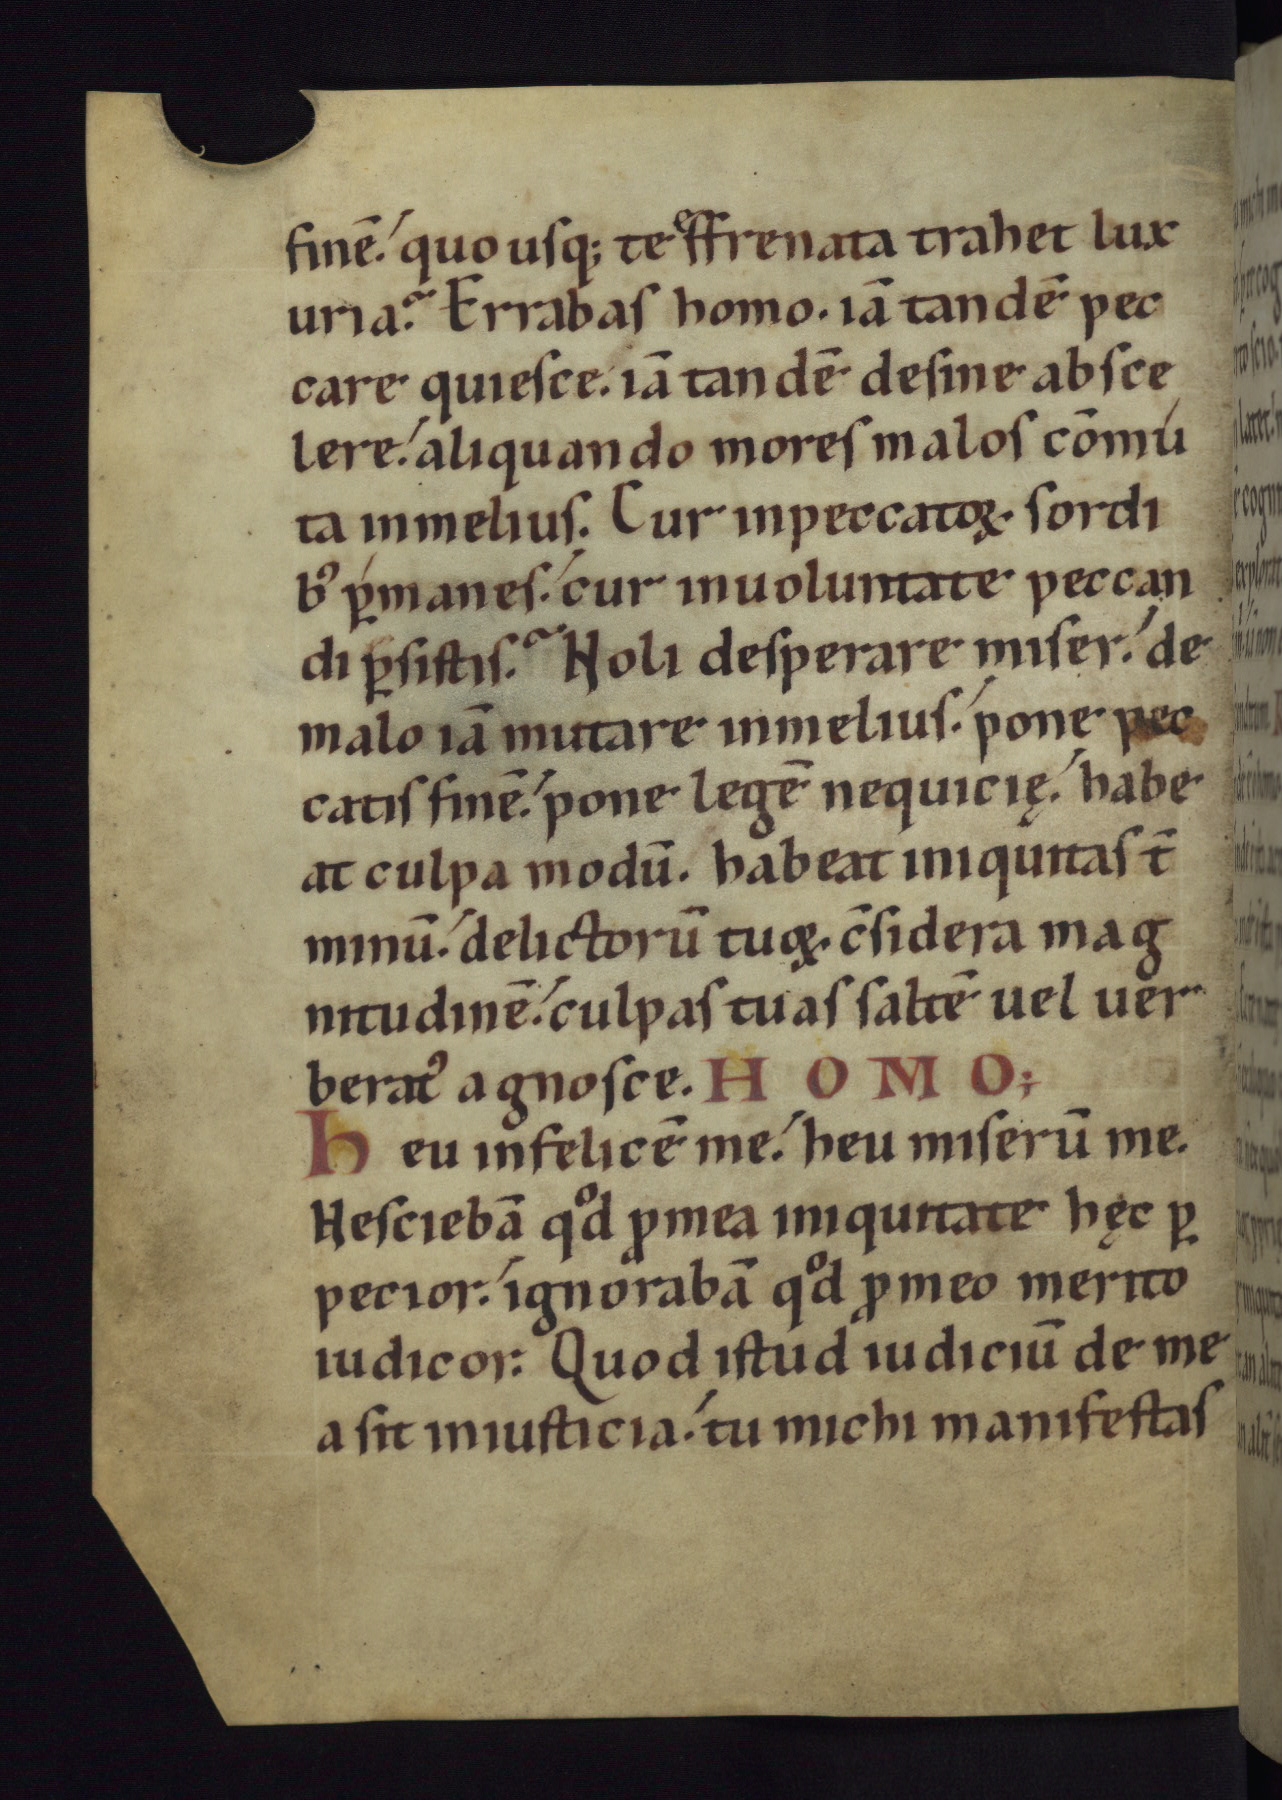 finē. quo usq; te effrenata trahet lux
uria. Errabas homo. iā tandē pec
care quiesce. iā tandē desine absce
lere. aliquando mores malos cōmu
ta inmelius. Cur inpeccatoꝝ sordi
bꝰ ꝑmanes. cur inuoluntate peccan
di ꝑsistis. Noli desperare miser. de
malo iā mutare inmelius. pone pec
catis finē. pone legē nequicię. habe
at culpa modū. habeat iniquitas t̄
minū. delictorū tuoꝝ. c̄sidera mag
nitudinē. culpas tuas saltē uel uer
beratꝰ agnosce. HOMO;
Heu infelicē me. heu miserū me.
Nesciebā qͦd ꝓmea iniquitate hęc ꝑ
pecior. ignorabā qͦd ꝓmeo merito
iudicor. Quod istud iudiciū de me
a sit iniusticia. tu michi manifestas